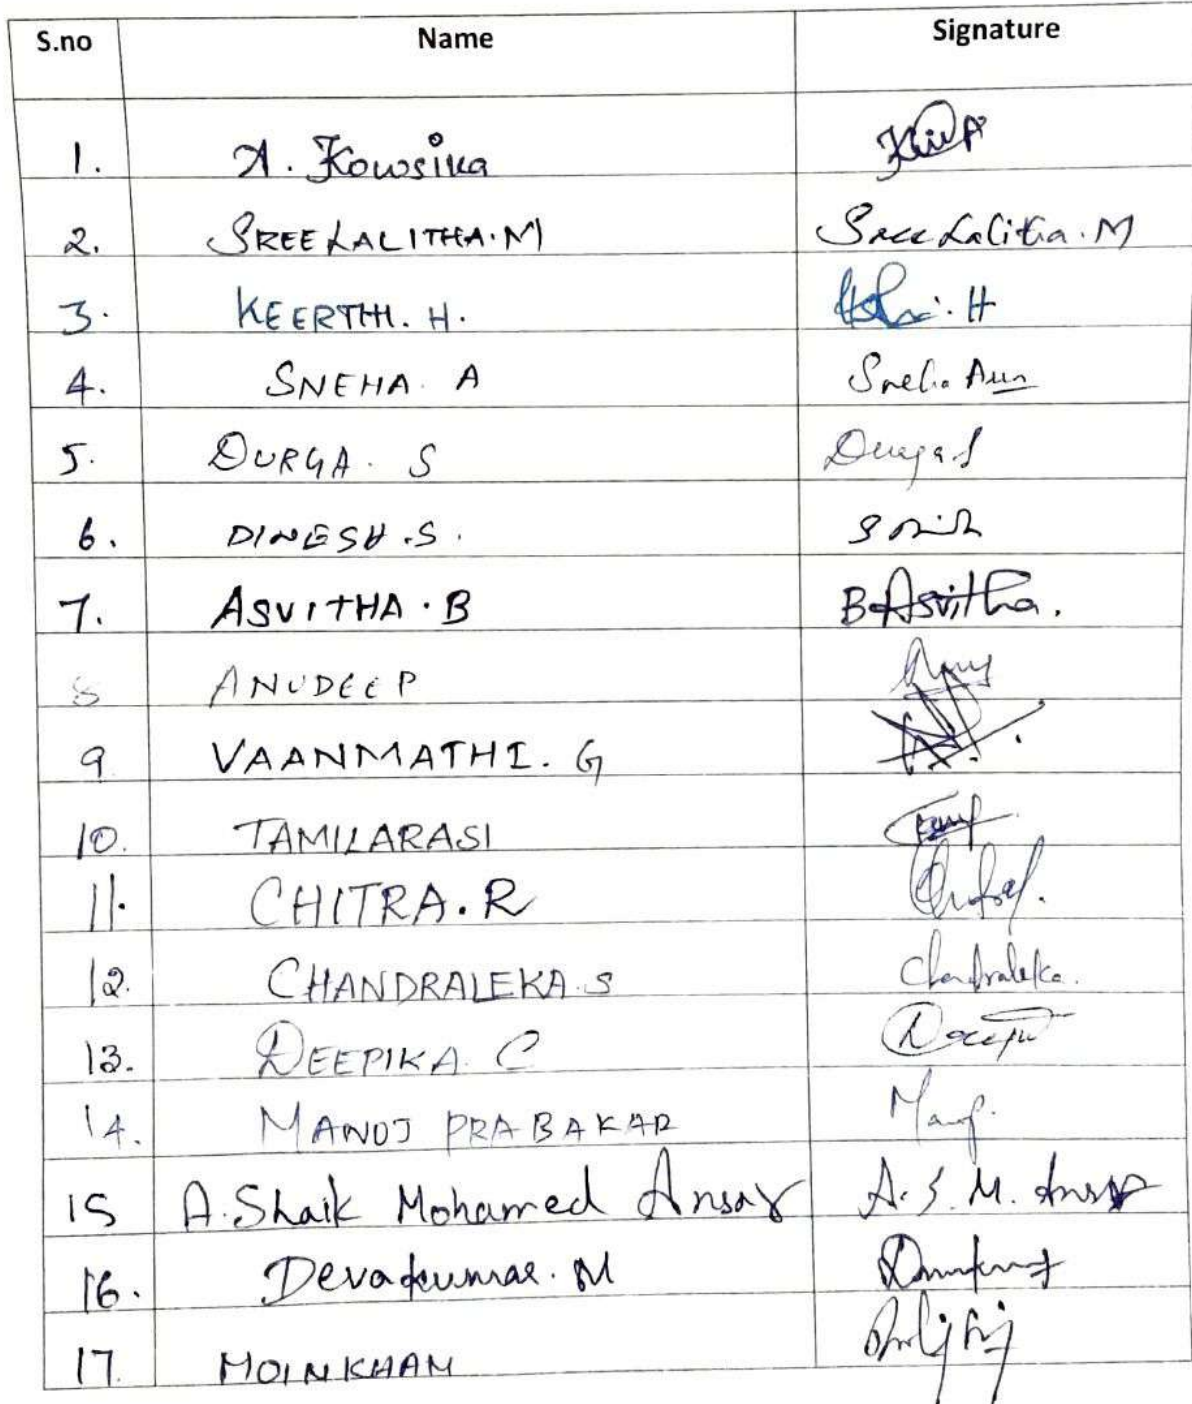 S.no Name Signature
1. A. Kowsika
2. SREE LALITHA.M Sree Lalitha.M
3. KEERTHI. H. H
4. SNEHA. A Sneha
5. DURGA. S Durga.S
6. DINESH.S. S
7. ASVITHA.B B Asvitha.
8 ANUDEEP
9 VAANMATHI. G
10. TAMILARASI
11. CHITRA.R
12. CHANDRALEKA.S Chandraleka.
13. DEEPIKA. C
14. MANOJ PRABAKAR
15 A.Shaik Mohamed Ansar A.S.M. Ansar
16. Devakumar.M
17. MOINKHAN